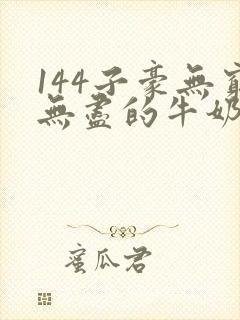 144子豪無窮
無盡的牛奶
蜜瓜君